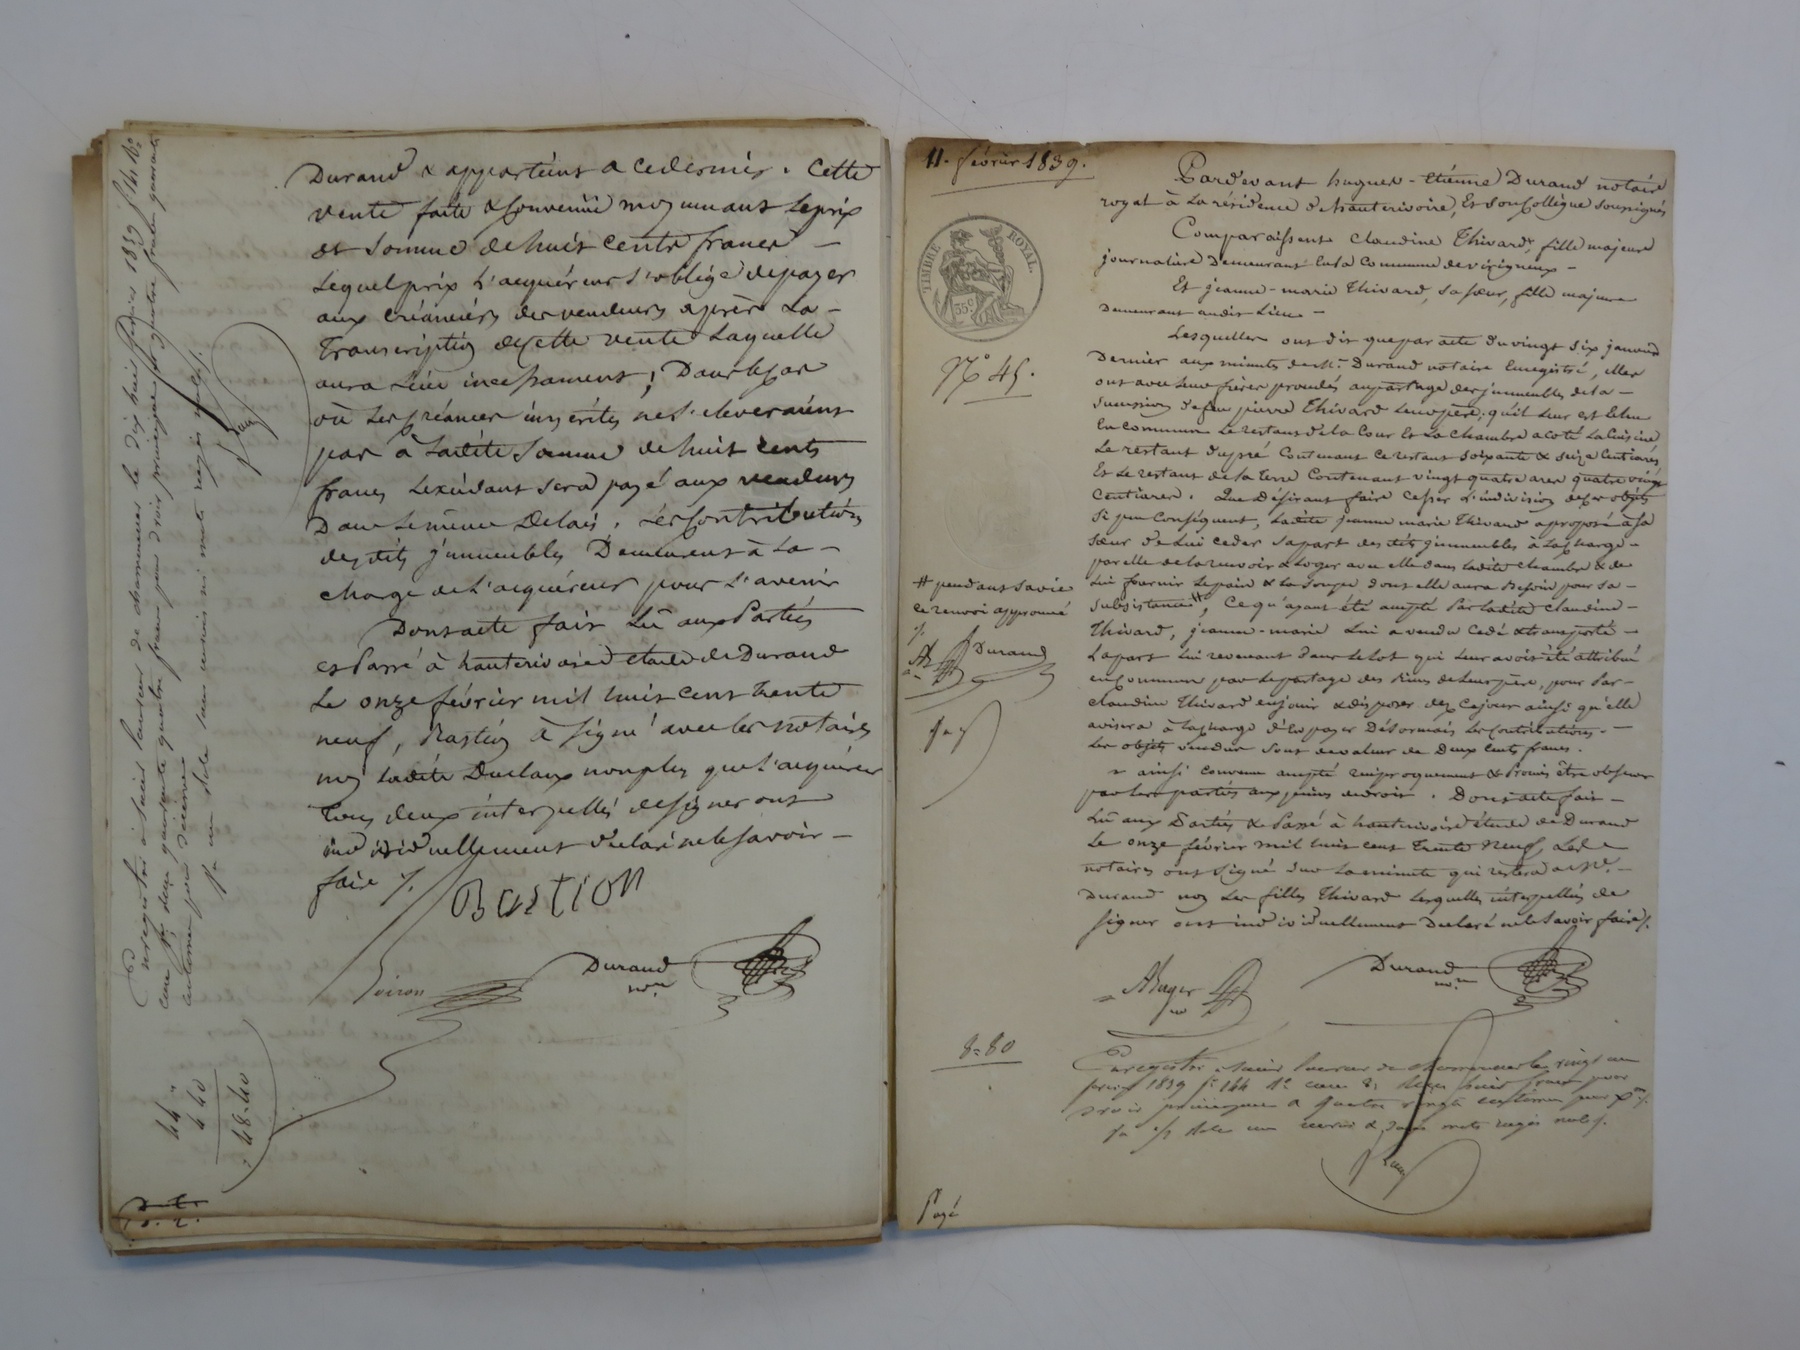 Durand & appartient a cedernier. Cette
vente faite & Convenüe moyennant le prix
et Somme de huit Cents francs —
Lequel prix L'acquéreur s'oblige de payer
aux créanciérs des vendeurs après La —
Transcription de cette vente Laquelle
aura Lieu incessament; Dans le Cas
où Les Créances inscrites ne s'eleveraient
pas à Ladite Somme de huit cents
francs L'excédant sera payé aux vendeurs
Dans Le même Delais. Les Contributions
desdits jmmeubles Demeurent à La —
charge de L'acquéreur pour L'avenir
Dont acte fait Lû aux Parties
et Passé à hauterivoire étude de Durand
Le onze février mil huit cent trente
neuf, Bastion à signé avec les notaires
non Ladite Duclaux non plus que L'acquéreur
Tous deux interpellés de signer ont
individuellement déclaré ne le savoir —
faire /.
BastION
Durand
nore
Enregistré à Saint Laurent de chamousset le dix huit février 1839
44 "
4 40
48-40
11. février 1839.
TIMBRE ROYAL.
35c.
N° 45.
Pardevant hugues-Etienne Durand notaire
royal à La résidence d'hauterivoire, Et son Collègue soussignés
Comparaissent Claudine Thivard, fille majeure
journalière Demeurant En la Commune de virigneux —
Et jeanne-marie Thivard, sa sœur, fille majeure
Demeurant audit Lieu —
Lesquelles ont dit que par acte du vingt six janvier
Dernier aux minutes de Me. Durand notaire Enregistré, elles
ont avec Leurs frères procédé au partage des jmmeubles de la —
succession de feu pierre Thivard Leur père; qu'il Leur est Echu
En commun Le restant de la Cour Et La Chambre a coté La Cuisine
Le restant du pré Contenant ce restant soixante & seize Centiares
Et Le restant de la terre Contenant vingt quatre ares quatre vingt
Centiares. Que Désirant faire Cesser L'indivision de ces objets
Si peu Conséquent, Ladite jeanne marie Thivard a proposé à sa
sœur de Lui ceder sa part desdits jmmeubles à La charge —
par elle de la recevoir & Loger avec elle dans Ladite chambre & de
Lui fournir Le pain & La soupe dont elle aura Besoin pour sa —
subsistance #, Ce qu'ayant été accepté Par Ladite Claudine —
Thivard, jeanne-marie Lui a vendu Cedé & transporté —
La part Lui revenant dans Le Lot qui Leur avoit été attribué
en Commun par Le partage des Biens de Leur père, pour Par —
claudine Thivard en jouir & disposer dès Ce jour ainsi qu'elle
avisera à La charge d'En payer Désormais Les Contributions. —
Les objets vendus sont de valeur de Deux Cents francs.
ainsi convenu accepté réciproquement & Promis être observé
par Les parties aux peines de droit. Dont acte fait —
Lû aux Parties & Passé à hauterivoire étude de Durand
Le onze février mil huit cent Trente Neuf, Les
notaires ont signé sur La minute qui restera a Me. —
Durand non Les filles Thivard Lesquelles interpellées de
signer ont individuellement Declaré ne le savoir faire /.
# pendant sa vie
ce renvoi approuvé
/.
Durand
Durand
nore
8=80
Enregistré à Saint Laurent de chamousset le vingt un
février 1839 fo 144 Ro case 8, Reçu huit francs pour
droit principal & quatre vingts centimes pour
Payé